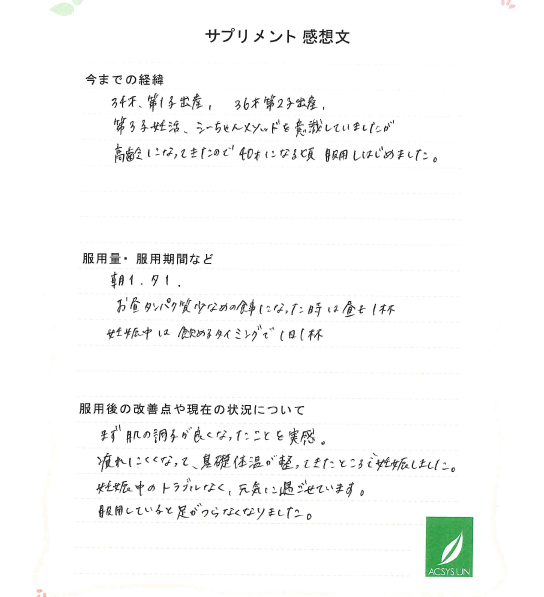 サプリメント 感想文
今までの経緯
34才、第1子出産, 36才第2子出産,
第3子妊活、しーちゃんメソッドを意識していましたが
高齢になってきたので 40才になる頃 服用しはじめました。
服用量・服用期間など
朝1.夕1.
お昼タンパク質少なめの食事になった時は昼も1杯
妊娠中は 飲めるタイミングで 1日1杯
服用後の改善点や現在の状況について
まず肌の調子が良くなったことを実感。
疲れにくくなって、基礎体温が整ってきたところで妊娠しました。
妊娠中のトラブルなく、元気に過ごせています。
服用していると足がつらなくなりました。
ACSYSUN